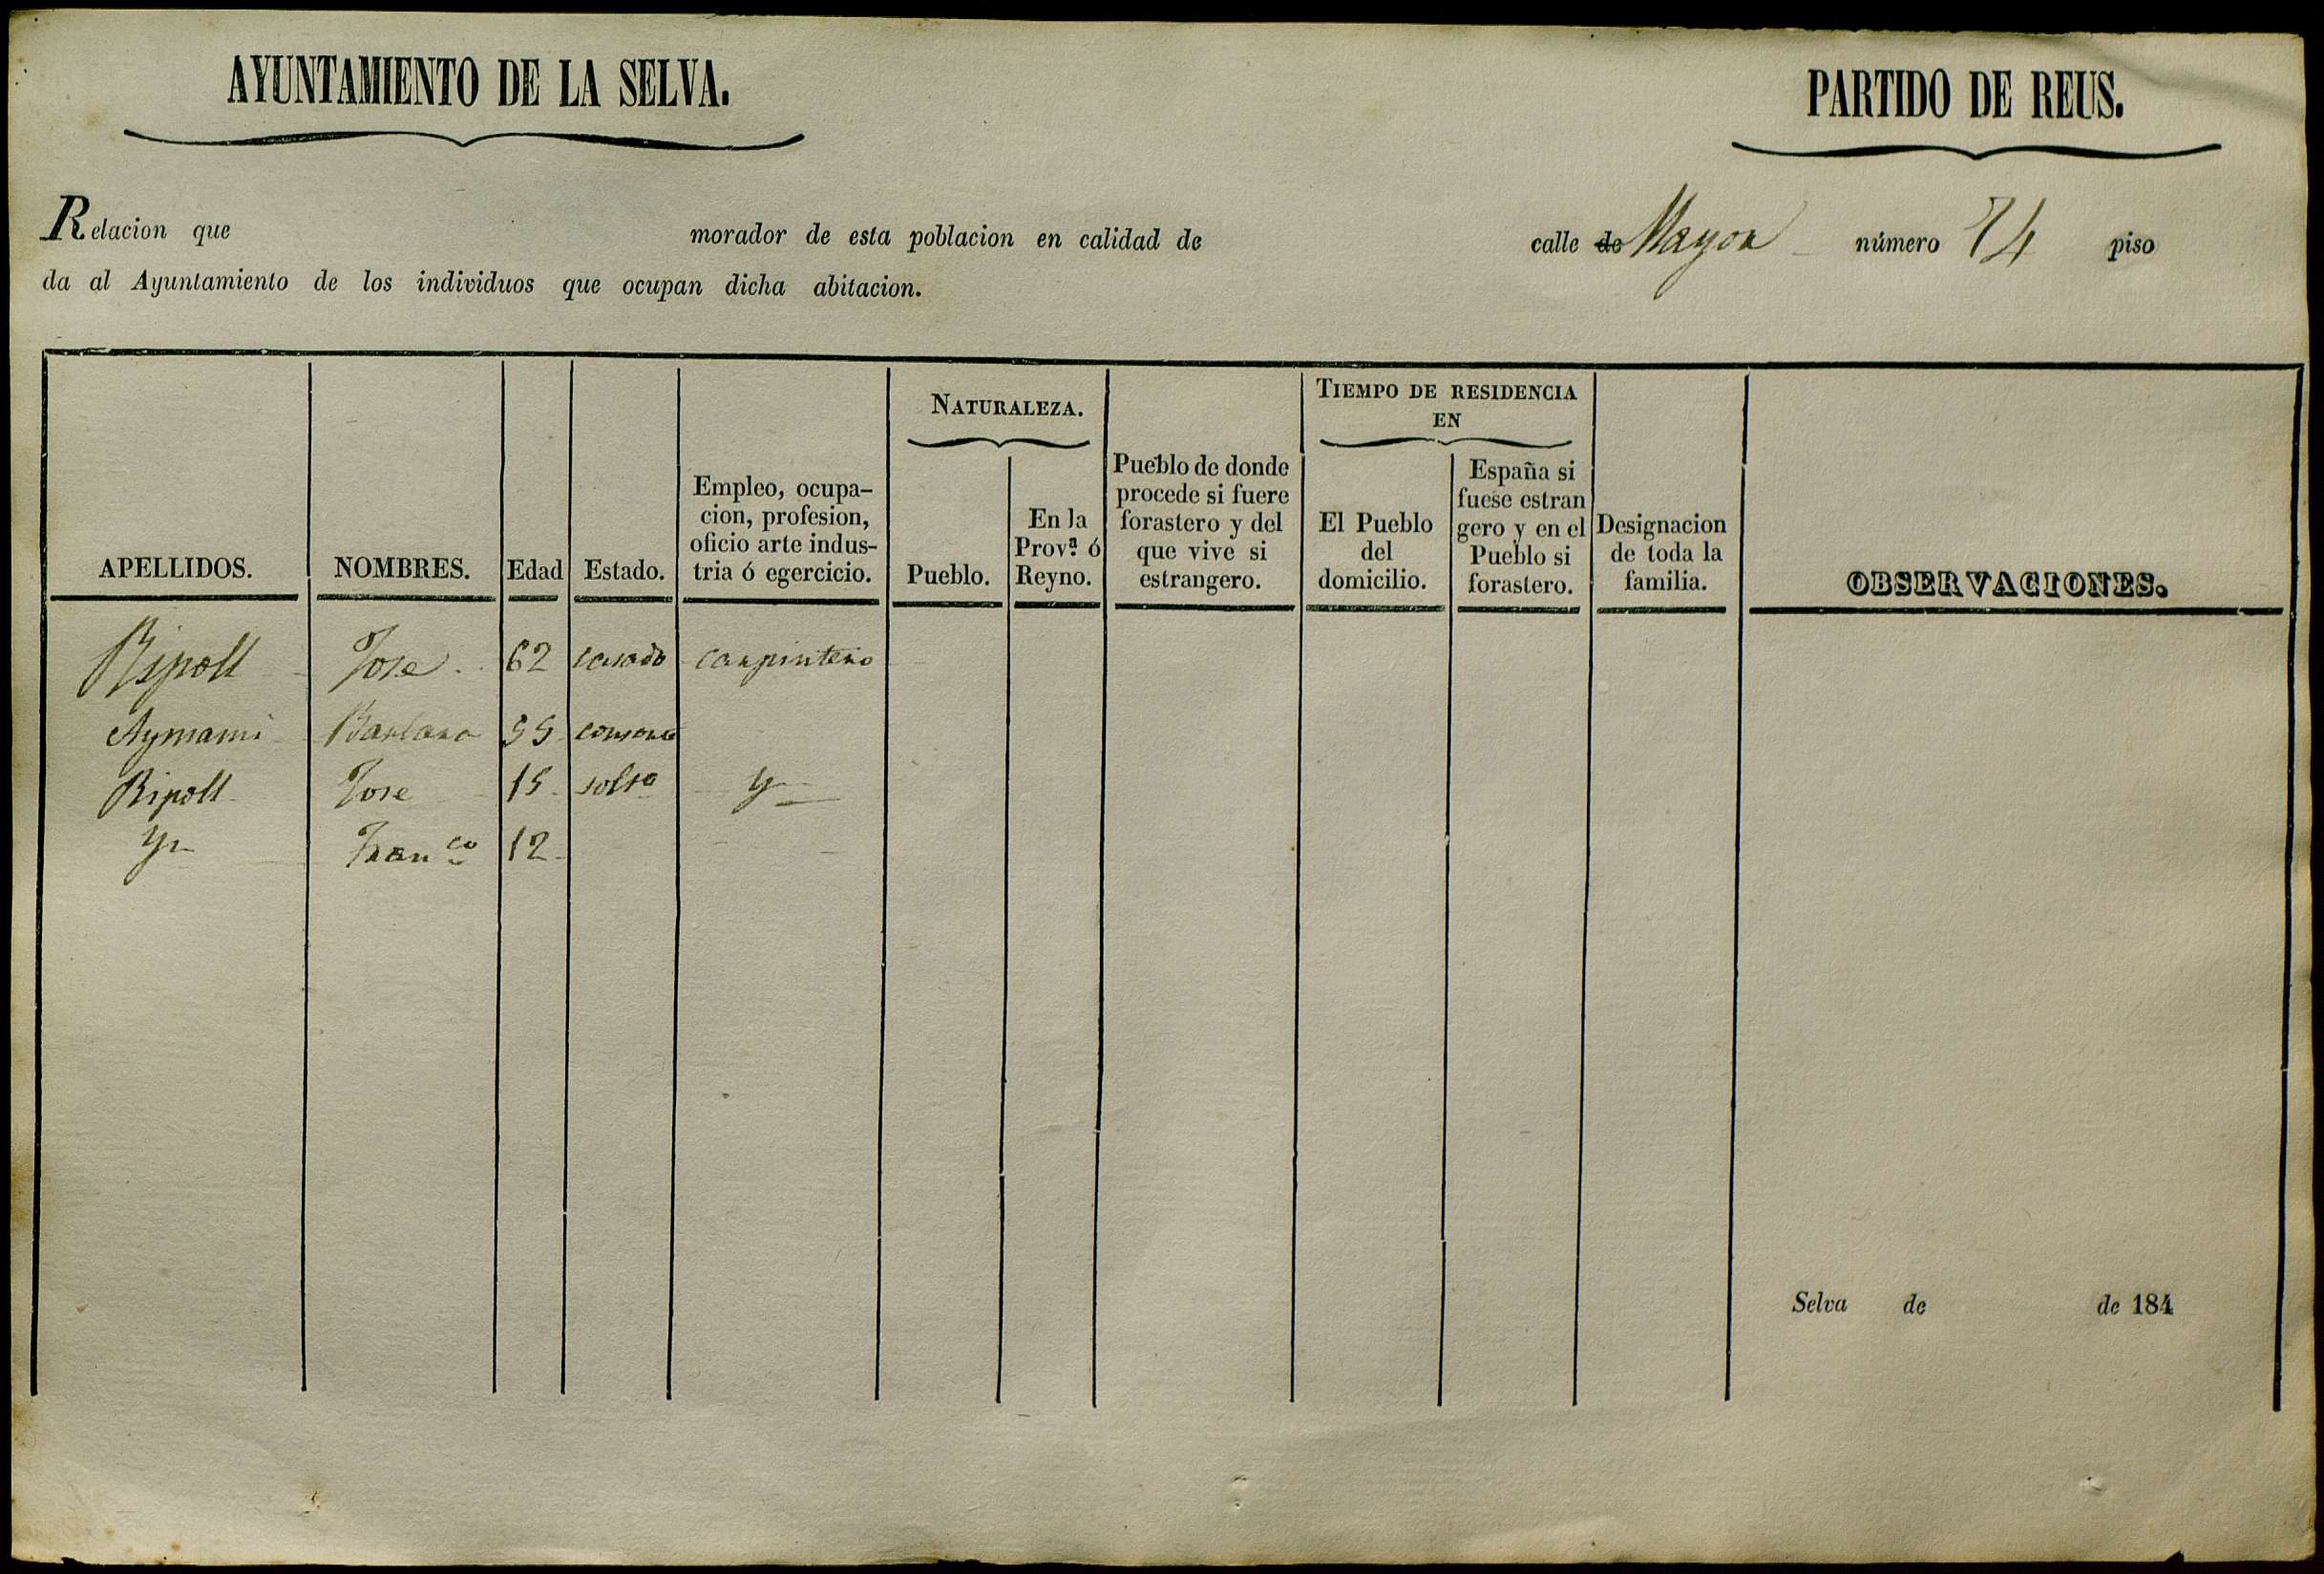 AYUNTAMIENTO DE LA SELVA.
PARTIDO DE REUS.
Relacion que morador de esta poblacion en calidad de calle de Mayor número 74 piso
da al Ayuntamiento de los individuos que ocupan dicha abitacion.
APELLIDOS.
NOMBRES.
Edad
Estado.
Empleo, ocupa-
cion, profesion,
oficio arte indus-
tria ó egercicio.
NATURALEZA.
Pueblo.
En la
Prov.ª ó
Reyno.
Pueblo de donde
procede si fuere
forastero y del
que vive si
estrangero.
TIEMPO DE RESIDENCIA
EN
El Pueblo
del
domicilio.
España si
fuese estran
gero y en el
Pueblo si
forastero.
Designacion
de toda la
familia.
OBSERVACIONES.
Ripoll Jose 62 casado carpintero
Aymami Barbara 55
Ripoll Jose 15 solto Yd
Yd Franco 12
Selva de de 184